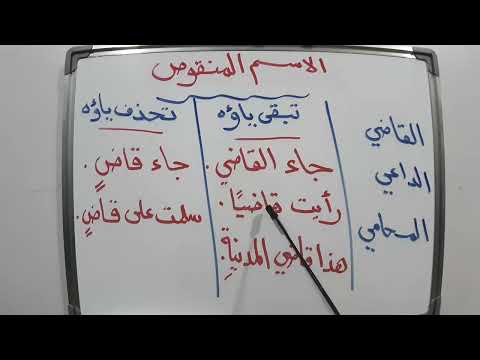 الاسم المنقوص
القاضي
الداعي
المحامي
تبقى ياؤه
جاء القاضي.
رأيت قاضيًا.
هذا قاضي المدينةِ.
تحذف ياؤه
جاء قاضٍ.
سلمت على قاضٍ.